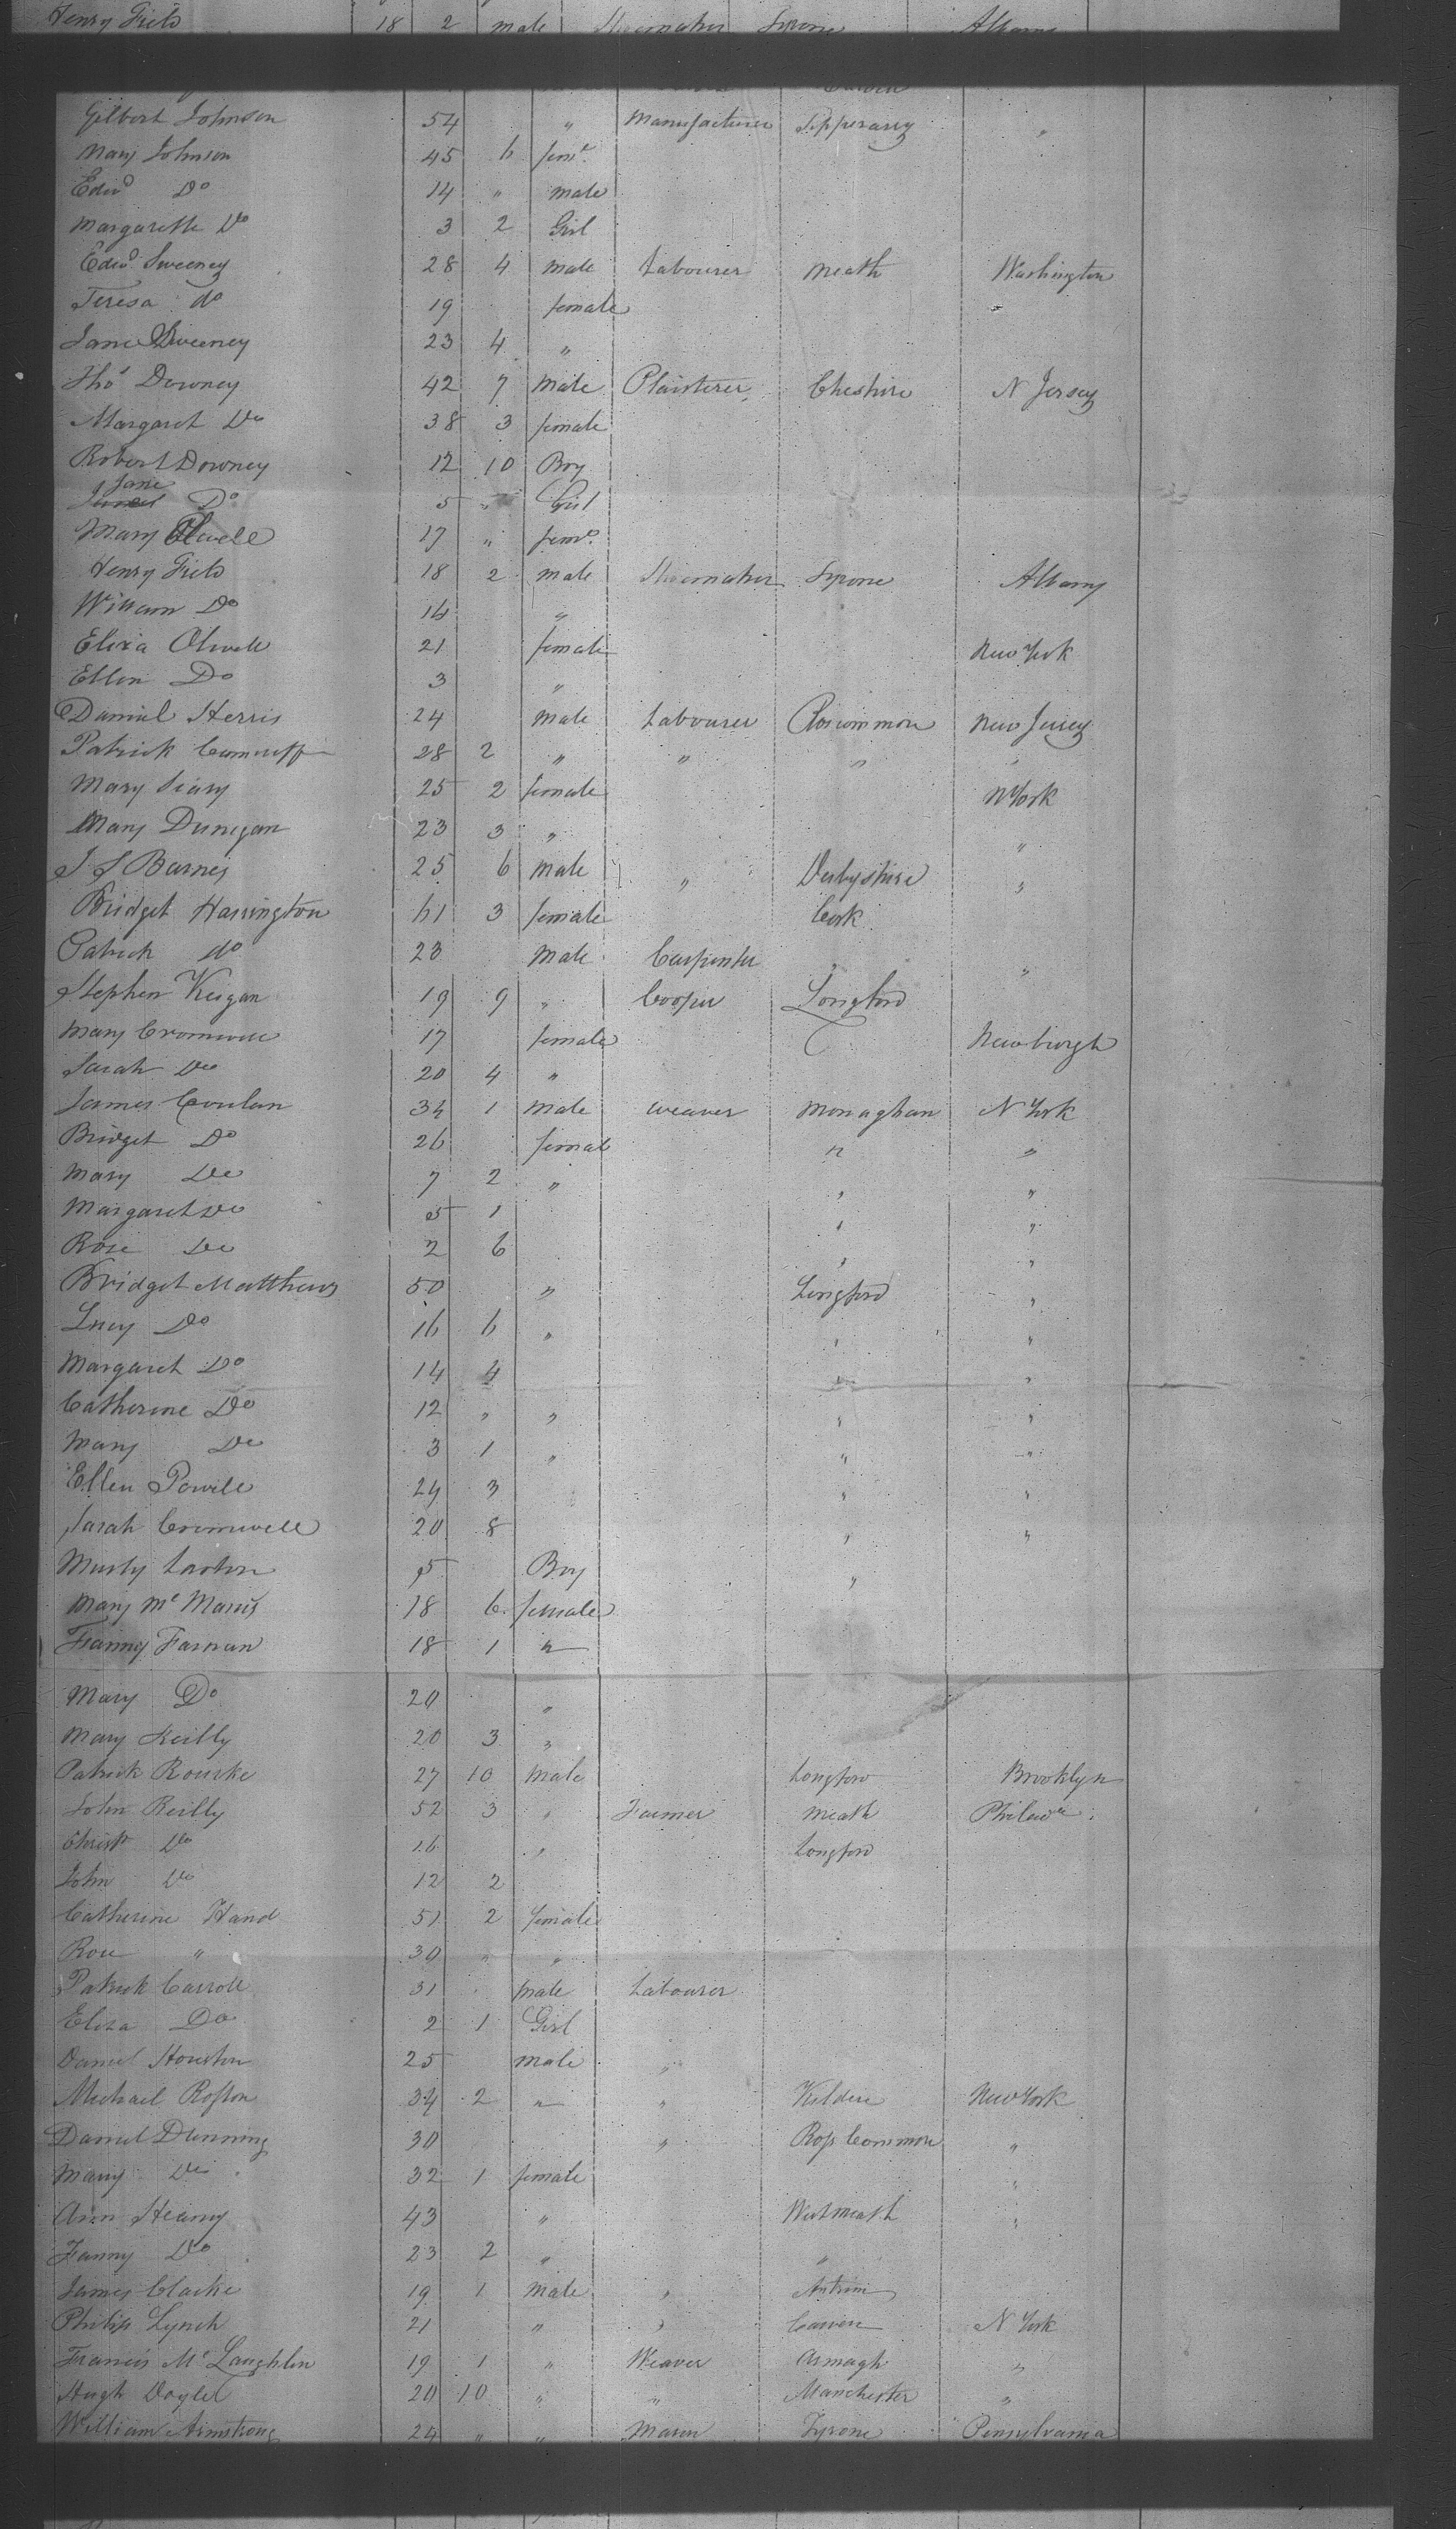 Henry Field 18 2 male Shoemaker Tyrone Albany
Gilbert Johnson 54 " Manufacturer Tipperary "
Mary Johnson 45 6 feme
Edwd Do 14 " male
Margarette Do 3 2 Girl
Edwd Sweeney 28 4 male Labourer Meath Washington
Teresa do 19 female
Jane Sweeney 23 4 "
Thos Downey 42 7 Male Plaisterer Cheshire N Jersey
Margaret Do 38 3 female
Robert Downey 12 10 Boy
Jane
Do 5 " Girl
Mary Olwell 17 " feme
Henry Field 18 2 male Shoemaker Tyrone Albany
William Do 14 "
Eliza Olwell 21 female New York
Ellen Do 3 "
Daniel Herris 24 Male Labourer Roscommon New Jersey
Patrick 28 2 " " " "
Mary 25 2 female N York
Mary Dunegan 23 3 " "
J S Barnes 25 6 Male " Derbyshire "
Bridget Harrington 61 3 female Cork
Patrick do 23 Male Carpenter " "
Stephen Keigan 19 9 " Cooper Longford
Mary Cromwell 17 female Newburgh
Sarah Do 20 4 "
James Conlan 34 1 Male weaver Monaghan N York
Bridget Do 26 femal " "
Mary Do 7 2 " " "
Margaret Do 5 1 " "
Rose Do 2 6 " "
Bridget Matthews 50 " Longford "
Lucy Do 16 6 " " "
Margaret Do 14 4 " "
Catherine Do 12 " " " "
Mary Do 3 1 " " "
Ellen Powell 24 3 " "
Sarah Cromwell 20 8 " "
5 Boy "
Mary Mc Manis 18 6 female
Fanny Farnan 18 1 "
Mary Do 20 "
Mary Reilly 20 3 "
Patrick Rourke 27 10 Male Longford Brooklyn
John Reilly 52 3 " Farmer Meath
Christr Do 16 " Longford
John Do 12 2
Catherine Hand 51 2 female
Rose " 30 " "
Patrick Carroll 31 male Labourer
Eliza Do 2 1 Girl
Daniel Houston 25 male "
Michael Roston 34 2 " " Kildere New York
Daniel Dunning 30 " Ross Common "
Mary Do 32 1 female "
Ann Heany 43 " Westmeath "
Fanny Do 23 2 " "
James Clarke 19 1 Male " Antrim
Philip Lynch 21 " " Caven N York
Francis Mc Laughlin 19 1 " Weaver Armagh "
Hugh Doyle 20 10 " " Manchester "
William Armstrong 24 " " Mason Tyrone Pensylvania